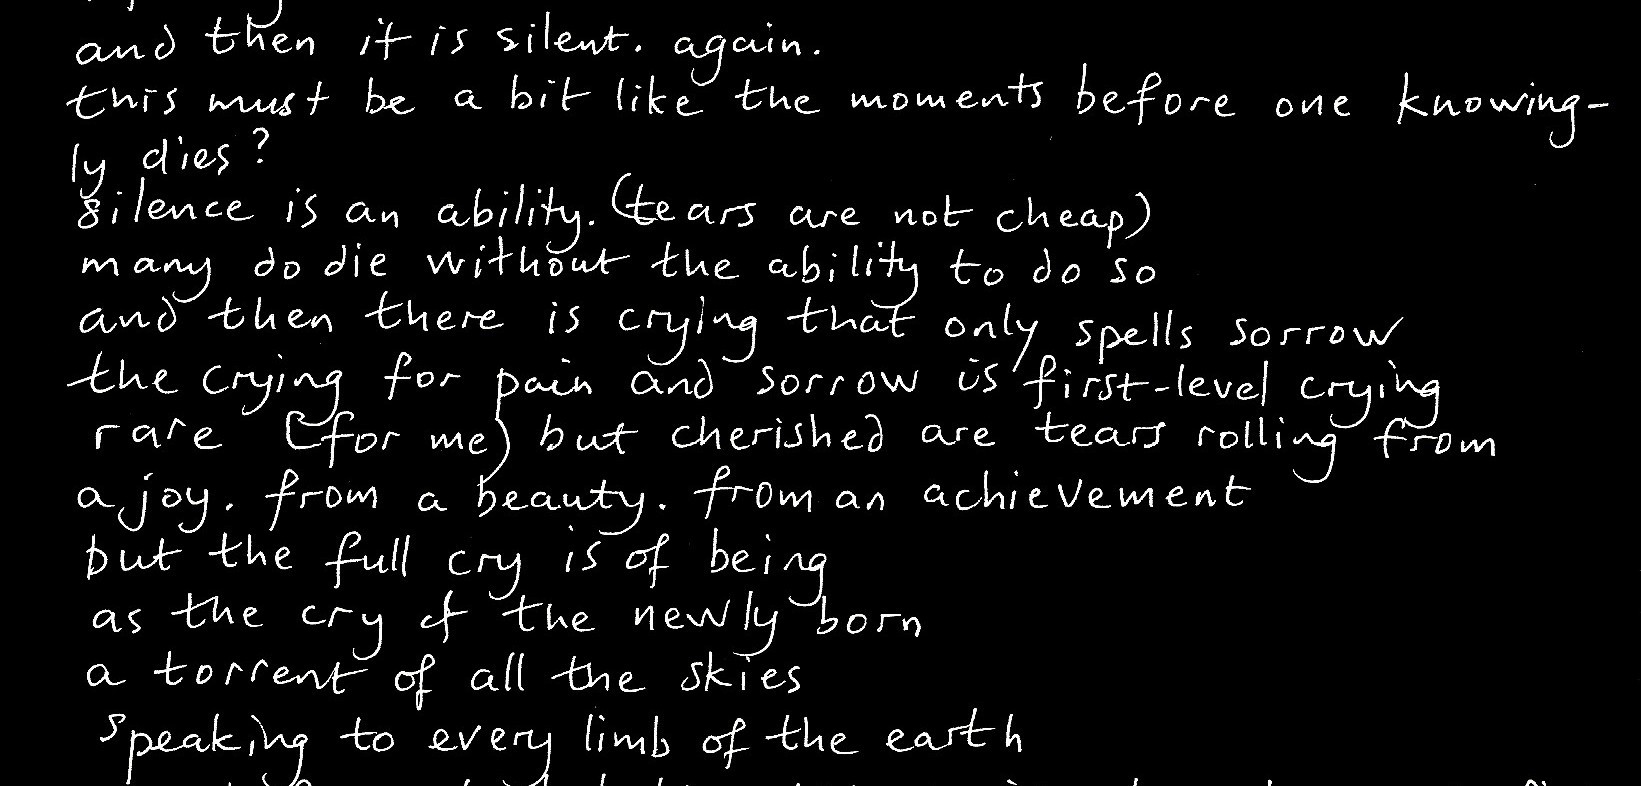 and then it is silent. again.
this must be a bit like the moments before one knowing-
ly dies?
silence is an ability. (tears are not cheap)
many do die without the ability to do so
and then there is crying that only spells sorrow
the crying for pain and sorrow is first-level crying
rare (for me) but cherished are tears rolling from
a joy. from a beauty. from an achievement
but the full cry is of being
as the cry of the newly born
a torrent of all the skies
speaking to every limb of the earth